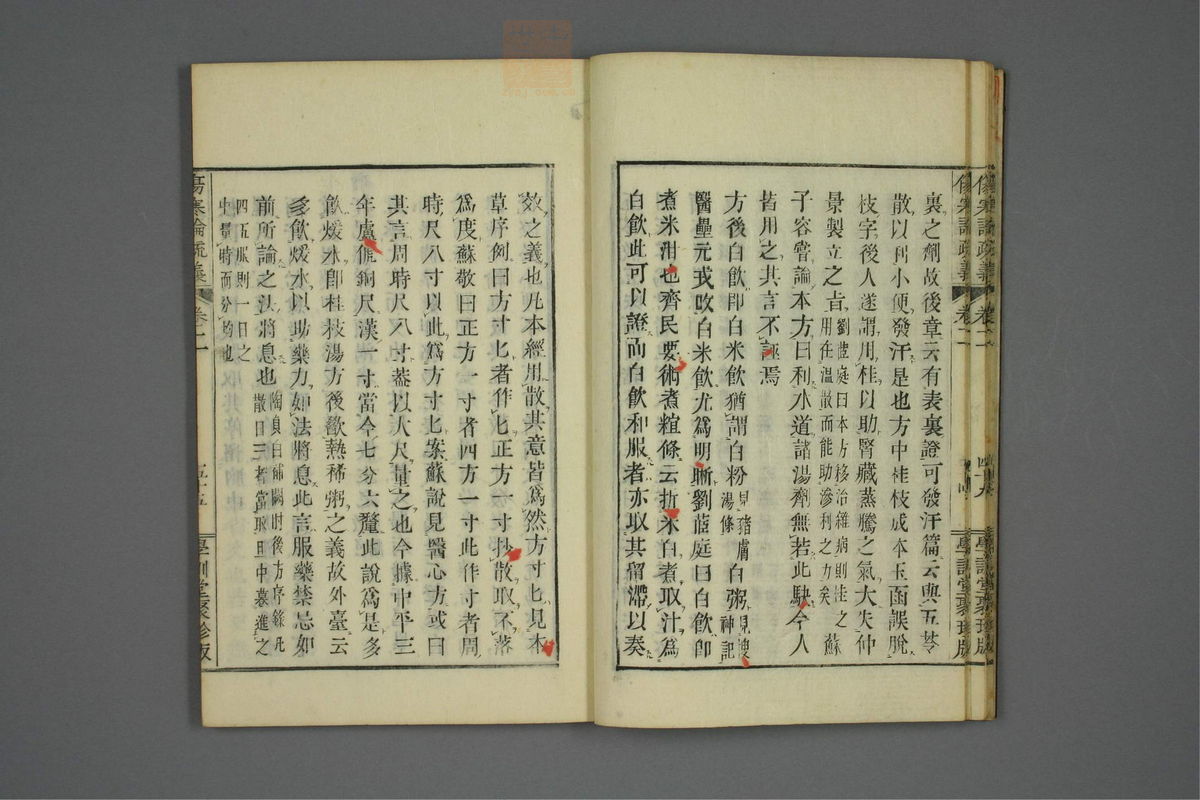 裏之劑故後章云有表裏證可發汗篇云與五苓
散以利小便發汗是也方中桂枝成本玉函誤脫
枝字後人遂謂用桂以助腎藏蒸騰之氣大失仲
景製立之旨劉茝庭曰本方移治雜病則桂之用在溫散而能助滲利之力矣蘇
子容嘗論本方曰利水道諸湯劑無若此駃今人
皆用之其言不誣焉
方後白飲卽白米飲猶謂白粉見豬膚湯條白粥見搜神記
醫壘元戎改白米飲尤爲明晰劉茝庭曰白飲卽
煮米泔也齊民要術煮糉條云折米白煮取汁爲
白飲此可以證而白飲和服者亦取其留滯以奏
傷寒論疏義
卷二
學訓堂聚珍版
效之義也凡本經用散其意皆爲然方寸匕見本
草序例曰方寸匕者作匕正方一寸抄散取不落
爲度蘇敬曰正方一寸者四方一寸此作寸者周
時尺八寸以此爲方寸匕案蘇說見醫心方或曰
其言周時尺八寸蓋以大尺量之也今據中平三
年盧俿銅尺漢一寸當今七分六釐此說爲是多
飲煖水卽桂枝湯方後歠熱稀粥之義故外臺云
多飲煖水以助藥力如法將息此言服藥禁忌如
前所論之法將息也陶貞白補闕肘後方序錄凡散日三者當取旦中暮進之
四五服則一日之中量時而分均也
傷寒論疏義
卷二
五十五
學訓堂聚珍版